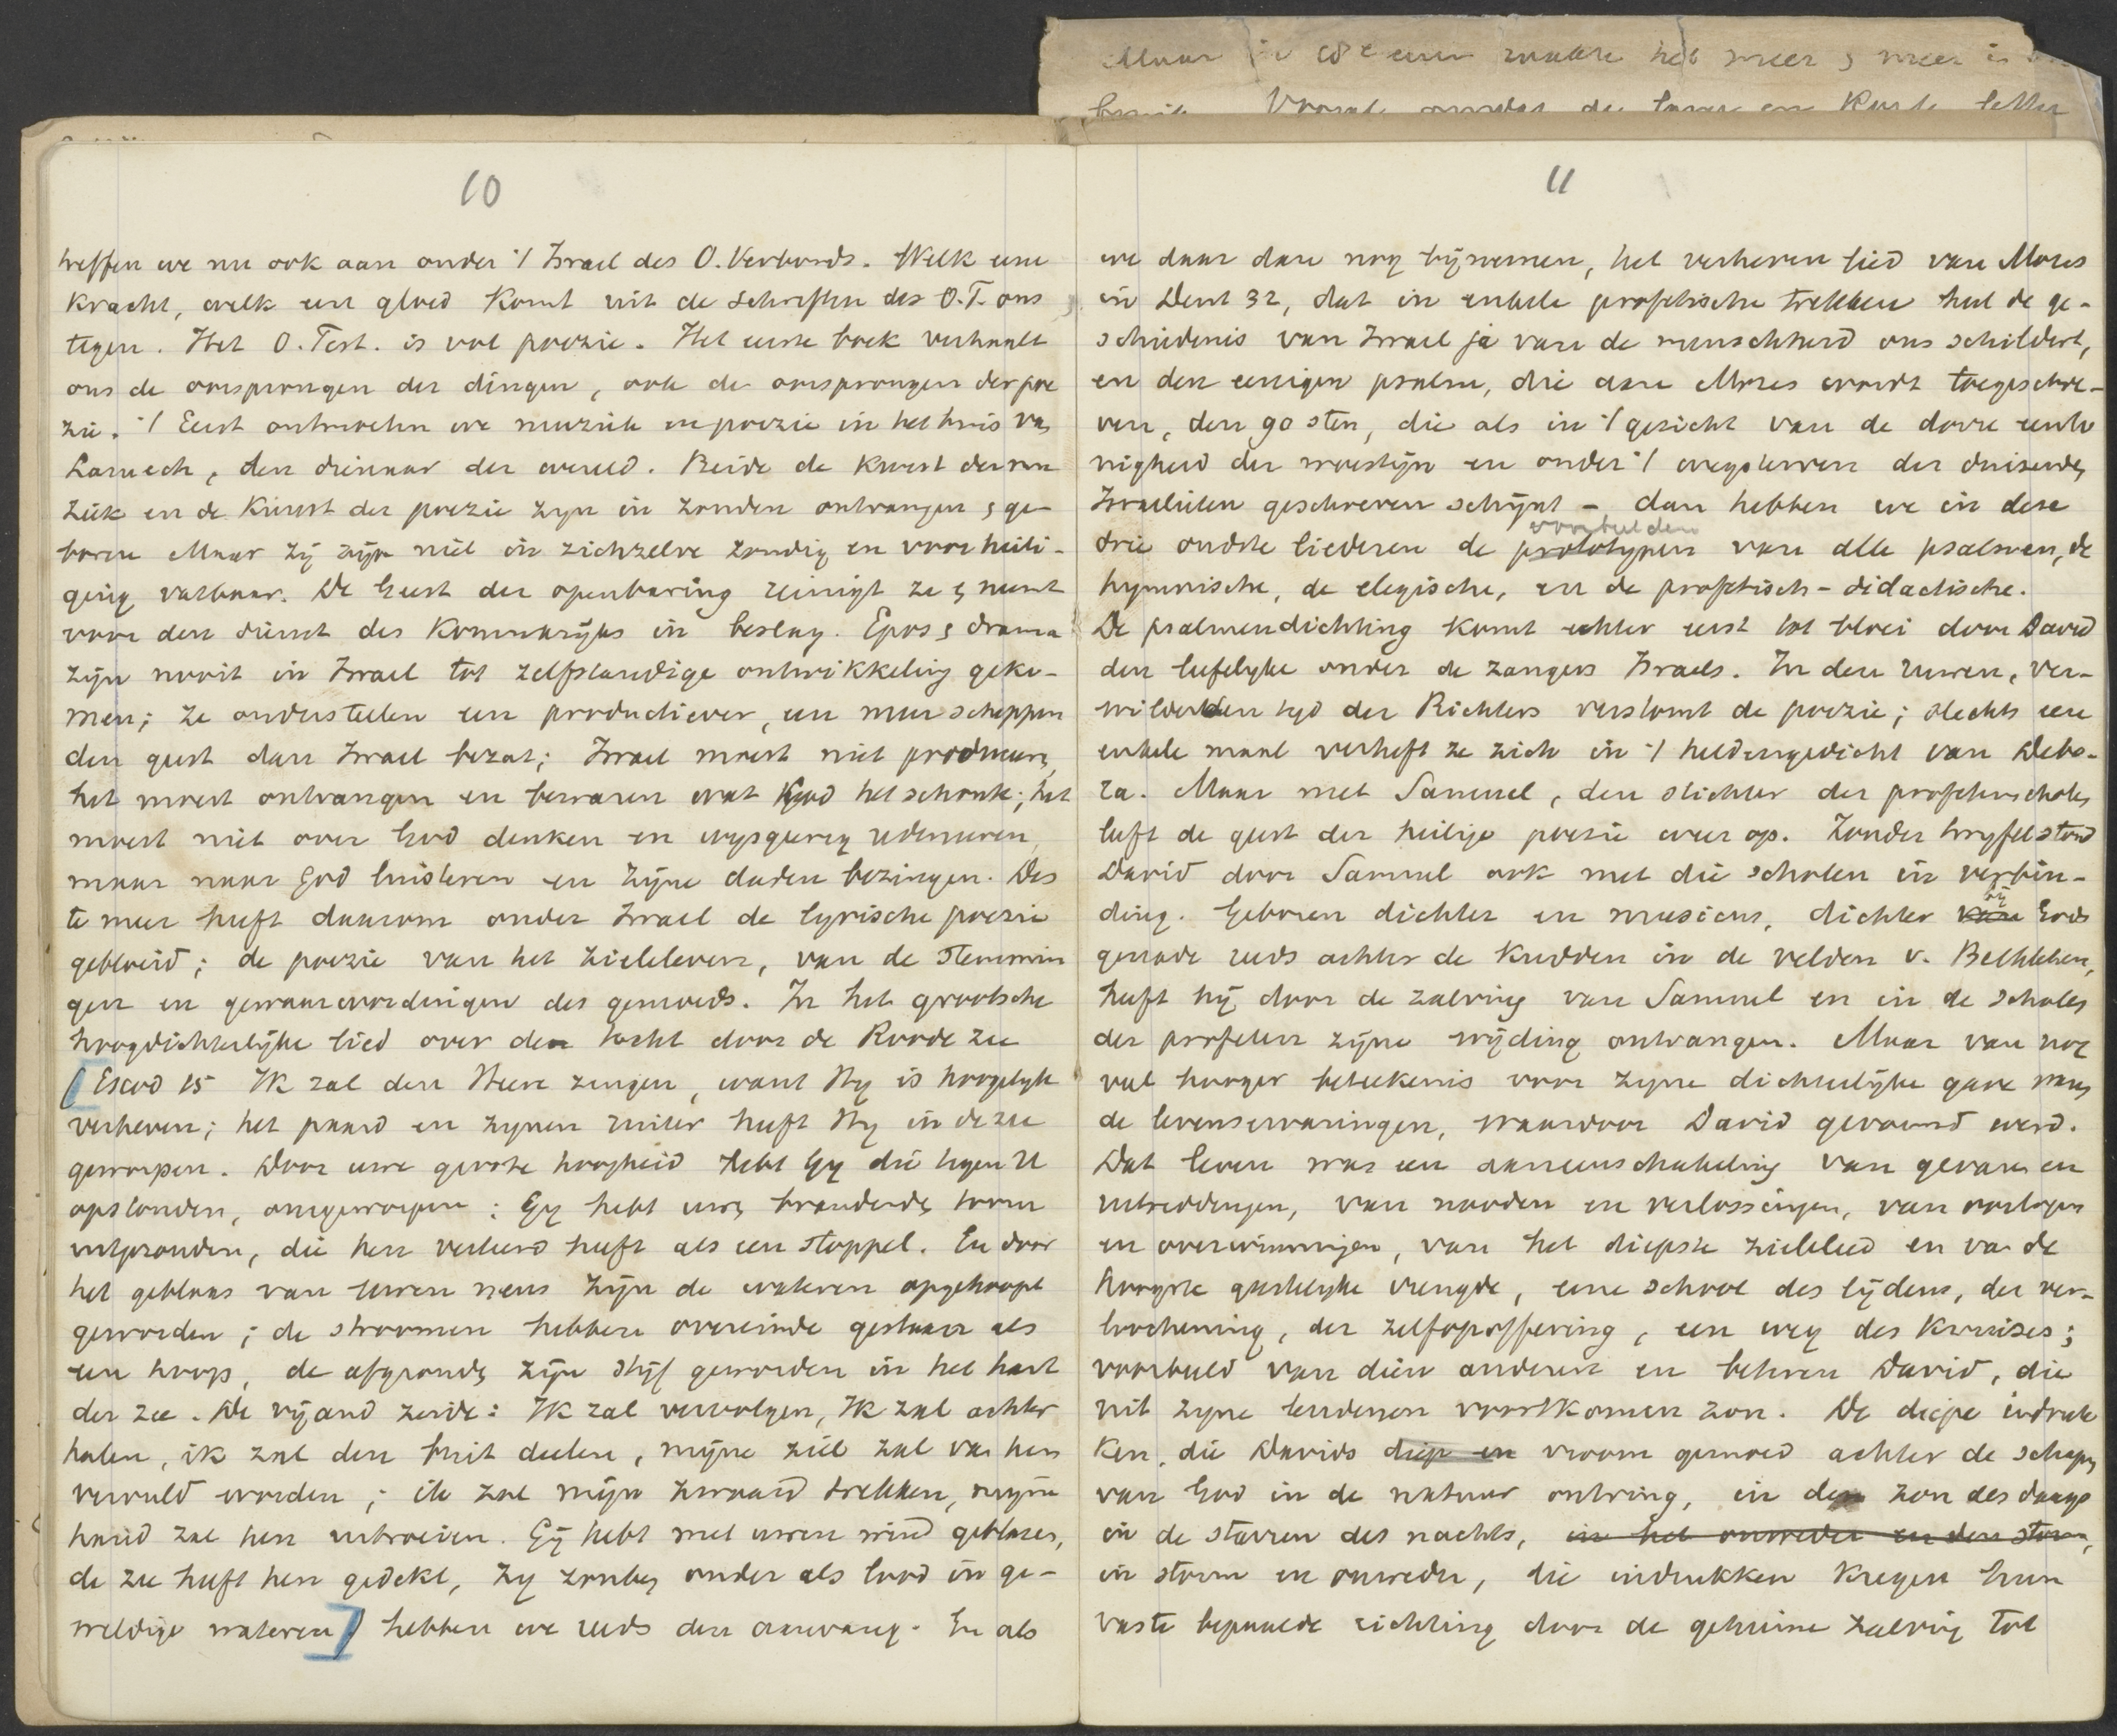 Maar in 18e eeuw raakte het meer & meer in
Vooral omdat de lange en korte letter
10
treffen we nu ook aan onder 't Israel des O. Verbonds. Welk eene
kracht, welk een gloed komt uit de Schriften des O.T. ons
tegen. Het O. Test. is vol poezie. Het eerste boek verhaalt
ons de oorsprongen der dingen, ook de oorsprongen der poe
zie. 't Eerst ontmoeten we muziek en poezie in het huis van
Lamech, den dienaar der wereld. Beide de kunst der mu
ziek en de kunst der poezie zyn in zonden ontvangen & ge-
boren Maar zij zijn niet in zichzelve zondig en voor heili-
ging vatbaar. De Geest der openbaring reinigt ze & neemt
voor den dienst des Koninkrijks in beslag. Epos & drama
zijn nooit in Israel tot zelfstandige ontwikkeling geko-
men; ze onderstellen een productiever, een meer scheppen
den geest dan Israel bezat; Israel moest niet produceeren,
het moest ontvangen en bewaren wat God het schonk; het
moest niet over God denken en wysgeerig redeneeren,
maar naar God luisteren en zijne daden bezingen. Des
te meer heeft daarom onder Israel de lyrische poezie
gebloeid; de poezie van het zieleleven, van de stemmin
gen en gewaarwordingen des gemoeds. In het grootsche
hoogdichterlijke lied over den tocht door de Roode Zee
[Exod 15 Ik zal den Heere zingen, want Hy is hoogelyk
verheven; het paard en zynen ruiter heeft Hy in de zee
geworpen. Door uwe groote hoogheid hebt Gy die tegen U
opstonden, omgeworpen; Gy hebt uwen brandenden toorn
uitgezonden, die hen verteerd heeft als een stoppel. En door
het geblaas van uwen neus zijn de wateren opgehoopt
geworden; de stroomen hebben overeinde gestaan als
een hoop, de afgronden zijn stijf geworden in het hart
der zee. De vijand zeide: Ik zal vervolgen, Ik zal achter
halen, ik zal den buit deelen, mijne ziel zal van hen
vervuld worden; ik zal mijn zwaard trekken, mijne
hand zal hen uitroeien. Gij hebt met uwen wind geblazen,
de zee heeft hen gedekt, Zy zonken onder als lood in ge-
weldige wateren] hebben we reeds den aanvang. En als
11
we daar dan nog bijnemen, het verheven lied van Mozes
in Deut 32, dat in enkele profetische trekken heel de ge-
schiedenis van Israel ja van de menschheid ons schildert,
en den eenigen psalm, die aan Mozes wordt toegeschre-
ven, den 90 sten, die als in 't gezicht van de dorre eento
nigheid der woestijn en onder 't wegsterven der duizenden
Israelieten geschreven schijnt - dan hebben we in deze
voorbeelden
drie oudste liederen de prototypen van alle psalmen, de
hymnische, de elegische, en de profetisch-didactische.
De psalmendichting komt echter eerst tot bloei door David
den liefelyke onder de zangers Israels. In den ruwen, ver-
wilderden tyd der Richters verstomt de poezie; slechts een
enkele maal verheft ze zich in 't heldengedicht van Debo-
ra. Maar met Samuel, den stichter der profetenscholen
leeft de geest der heilige poezie weer op. Zonder twyfel stond
David door Samuel ook met die scholen in verbin-
bij
ding. Geboren dichter en musicus, dichter van Gods
genade reeds achter de kudden in de velden v. Bethlehem,
heeft hij door de zalving van Samuel en in de scholen
der profeten zijne wijding ontvangen. Maar van nog
veel hooger beteekenis voor zyne dichterlijke gave waren
de levenservaringen, waardoor David gevormd werd.
Dat leven was een aaneenschakeling van gevaren en
uitreddingen, van nooden en verlossingen, van oorlogen
en overwinningen, van het diepste zieleleed en van de
hoogste geestelyke vreugde, eene school des lijdens, der ver-
loochening, der zelfopoffering, een weg des kruises;
voorbeeld van dien anderen en beteren David, die
uit zyne lendenen voortkomen zou. De diepe indruk-
ken, die Davids diep en vroom gemoed achter de schapen
van God in de natuur ontving, in de zon des daags
in de starren des nachts, in het onweder en den storm,
in storm en onweder, die indrukken kregen hun
vaste bepaalde richting door de geheime zalving tot